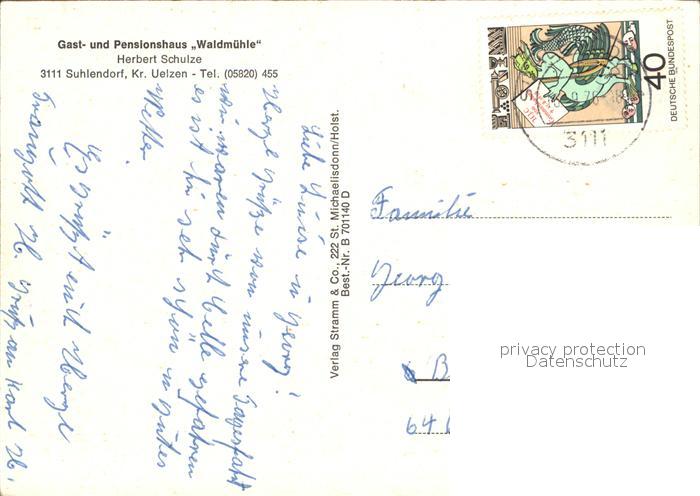 Gast- und Pensionshaus „Waldmühle"
Herbert Schulze
3111 Suhlendorf, Kr. Uelzen - Tel. (05820) 455
Liebe Luise u Georg!
Herzl Grüße von unsere Tagesfahrt
wir waren durch Celle gefahren
es ist hir sehr schön u gutes
Wetter.
Es grüßt euch Herzl
H. Gruß an Karl H.
Verlag Stramm & Co., 222 St. Michaelisdonn/Holst.
Best.-Nr. B 701140 D
40
DEUTSCHE BUNDESPOST
3111
Familie
Georg
B
64
privacy protection
Datenschutz